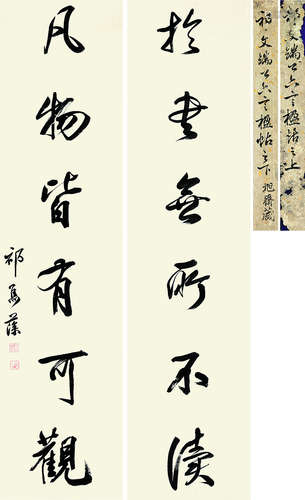 於書無所不讀
凡物皆有可觀
祁寯藻
祁文端公六言楹帖之上
祁文端公六言楹帖之下